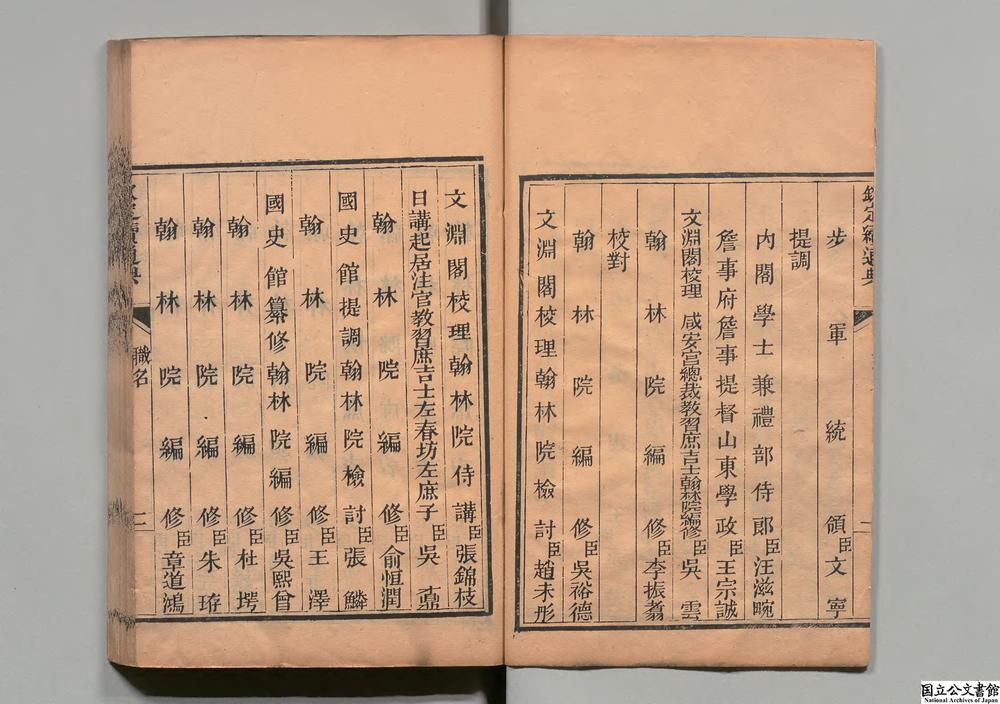 欽定續通典
二
步軍統領臣文寧
提調
內閣學士兼禮部侍郎臣汪滋畹
詹事府詹事提督山東學政臣王宗誠
文淵閣校理 咸安宮總裁教習庶吉士翰林院編修臣吳雲
翰林院編修臣李振翥
校對
翰林院編修臣吳裕德
文淵閣校理翰林院檢討臣趙未彤
文淵閣校理翰林院侍講臣張錦枝
日講起居注官教習庶吉士左春坊左庶子臣吳鼒
翰林院編修臣俞恒潤
國史館提調翰林院檢討臣張鱗
翰林院編修臣王澤
國史館纂修翰林院編修臣吳熙曾
翰林院編修臣杜堮
翰林院編修臣朱珔
翰林院編修臣章道鴻
欽定續通典
職名
二
国立公文書館
National Archives of Japan